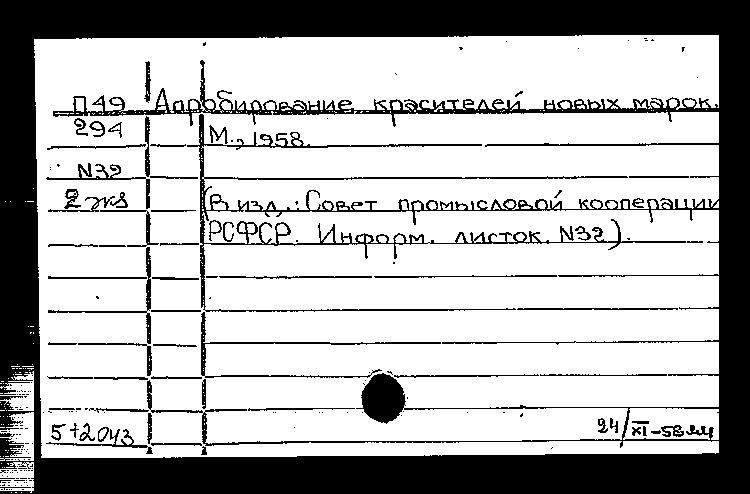 П49 Апробирование красителей новых марок.
294 М., 1958.
N32
2 экз (В изд.: Совет промысловой кооперации
РСФСР. Информ. листок. N32).
5+2043 24/XI-58